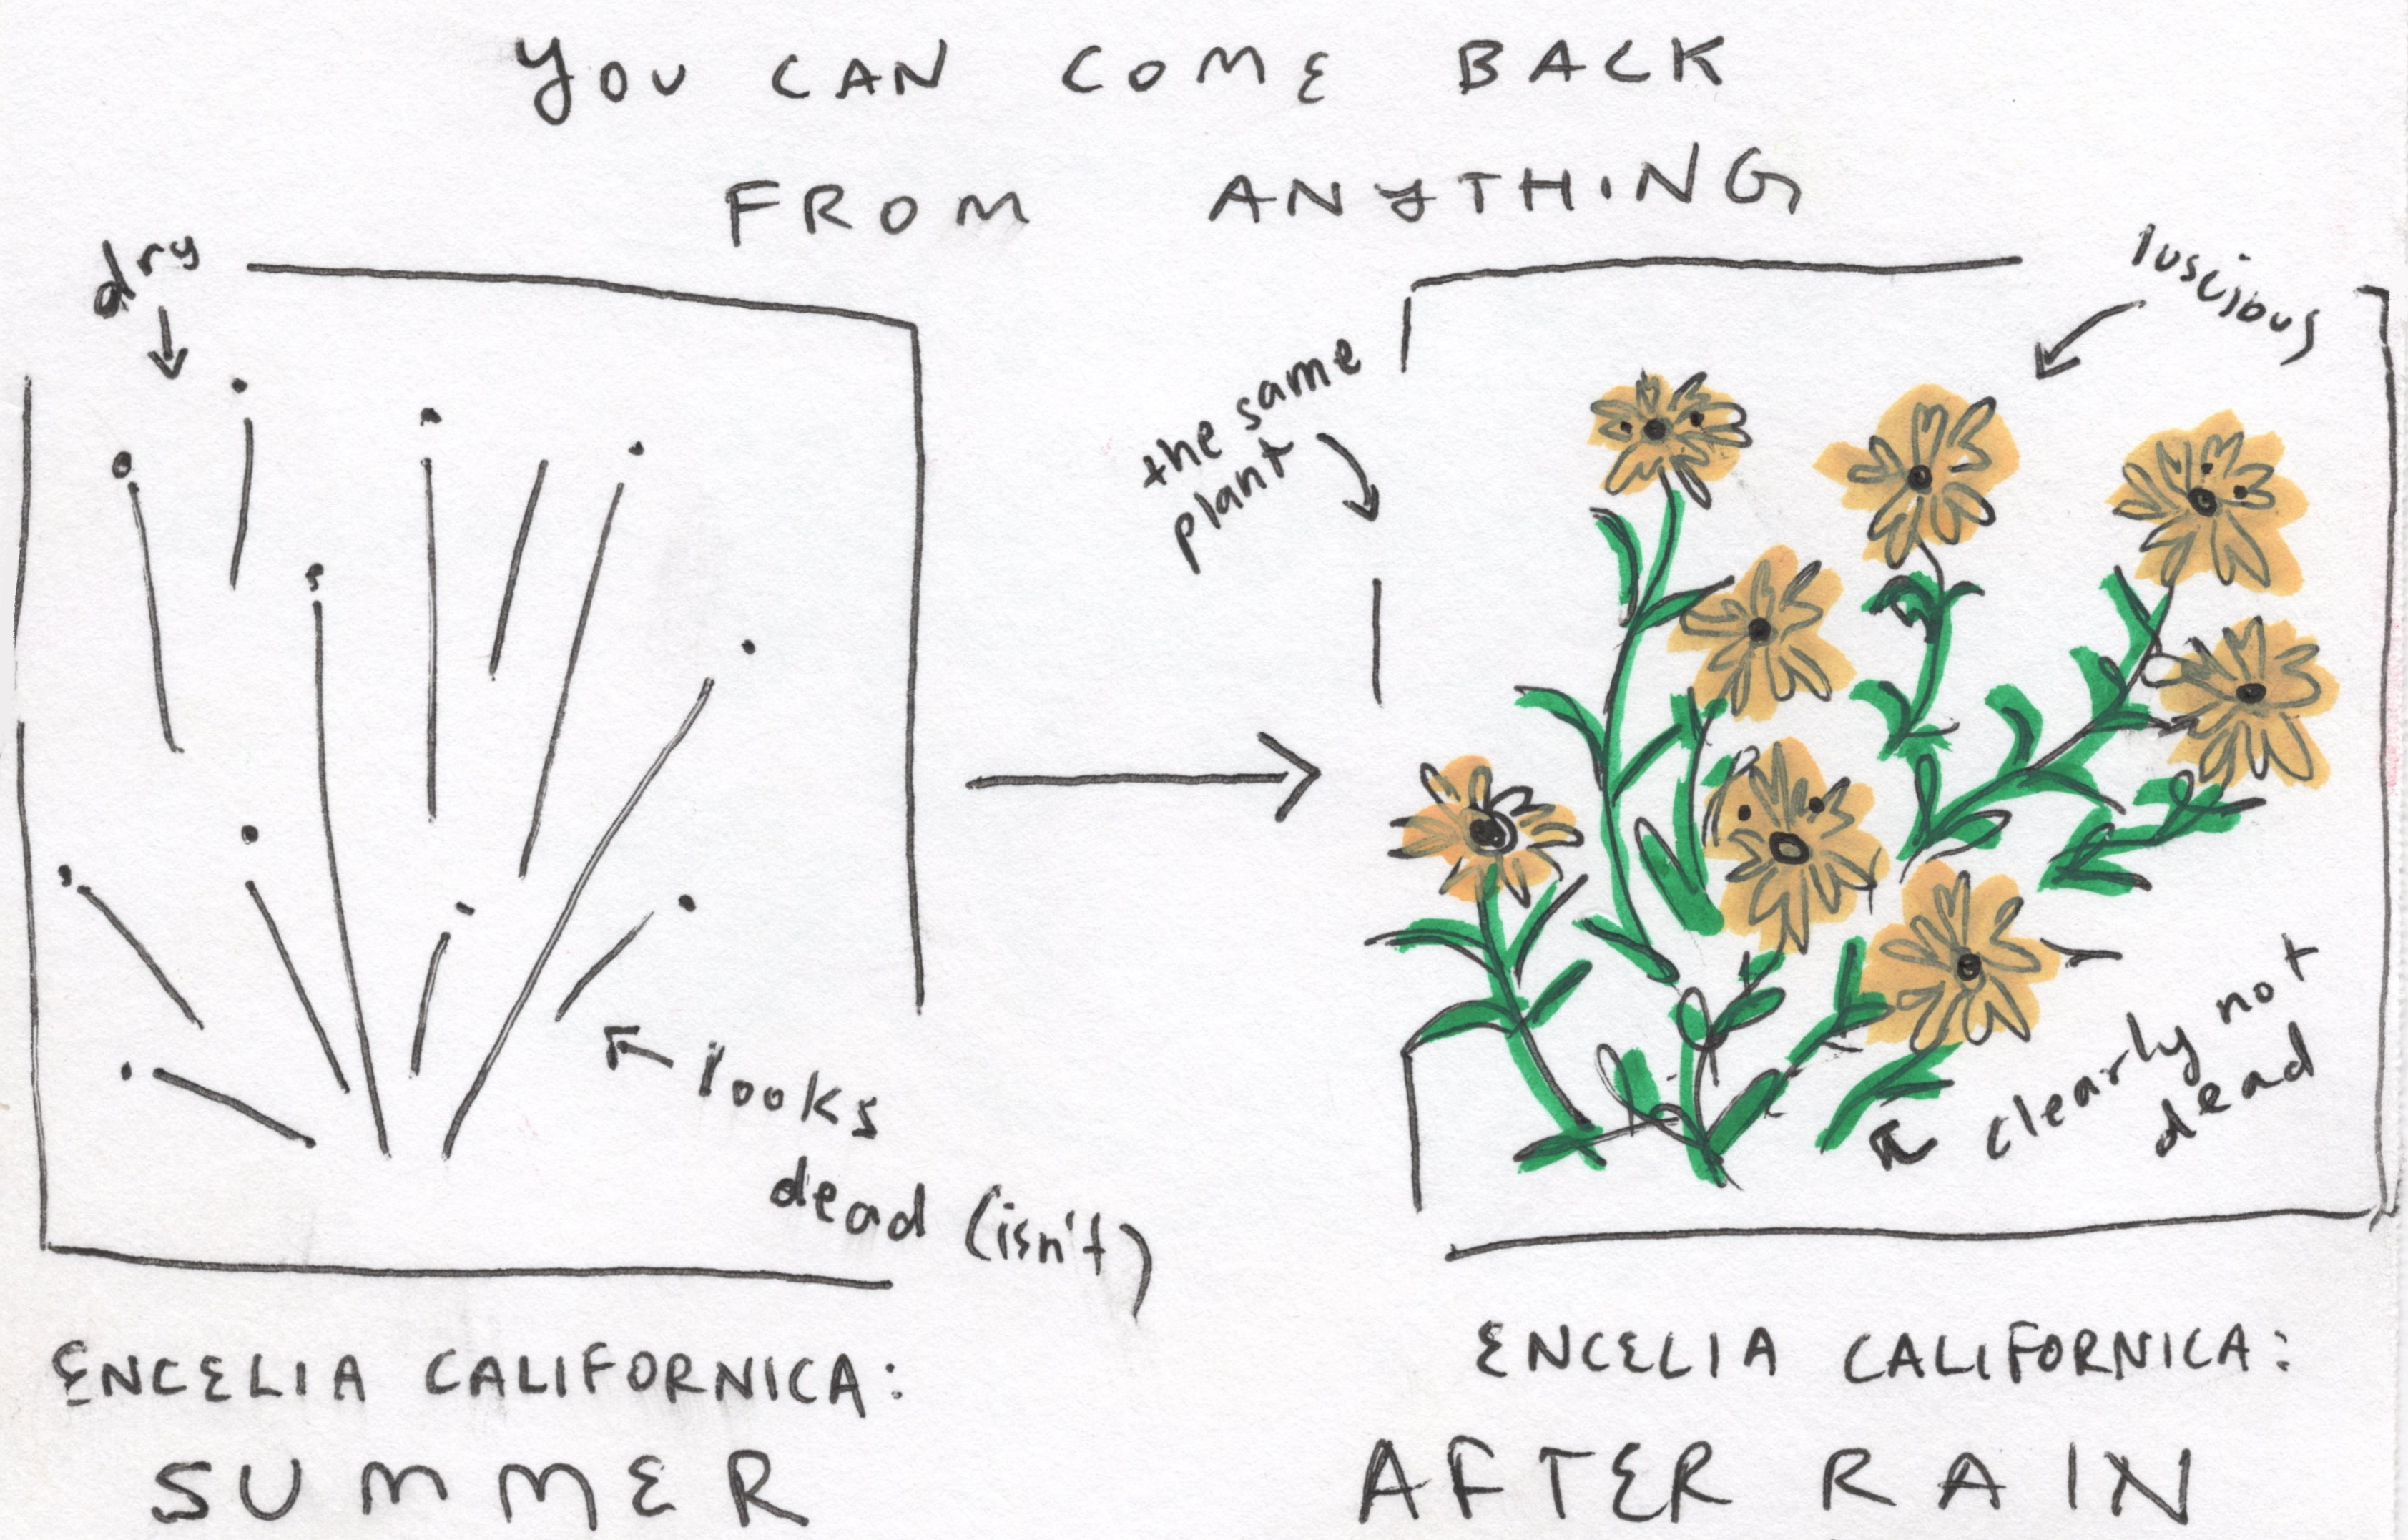 YOU CAN COME BACK
FROM ANYTHING
dry
looks
dead (isn't)
ENCELIA CALIFORNICA:
SUMMER
the same
plant
luscious
clearly not
dead
ENCELIA CALIFORNICA:
AFTER RAIN